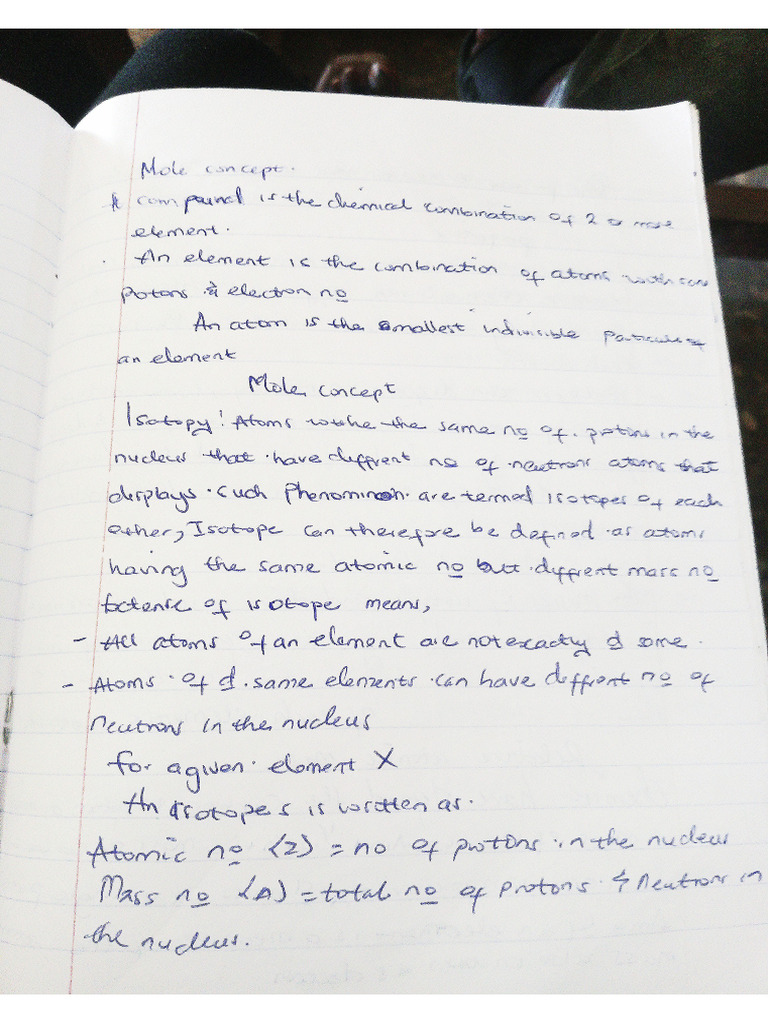 Mole concept.
A compound is the chemical combination of 2 or more
element.
An element is the combination of atoms with
Potons & electron no
An atom is the smallest indivisible particule of
an element
Mole concept
Isotopy: Atoms the same no of. protons in the
nucleus that have diffrent no of neutrons atoms that
displays such Phenominon are termed isotopes of each
other, Isotope can therefore be defined as atoms
having the same atomic no but diffrent mass no
of isotope means,
- All atoms of an element are not exactly d same.
- Atoms of d same elements can have diffrent no of
Neutrons in the nucleus
for a given element X
An isotopes is written as.
Atomic no (Z) = no of protons in the nucleus
Mass no (A) = total no of protons & Neutrons in
the nucleus.